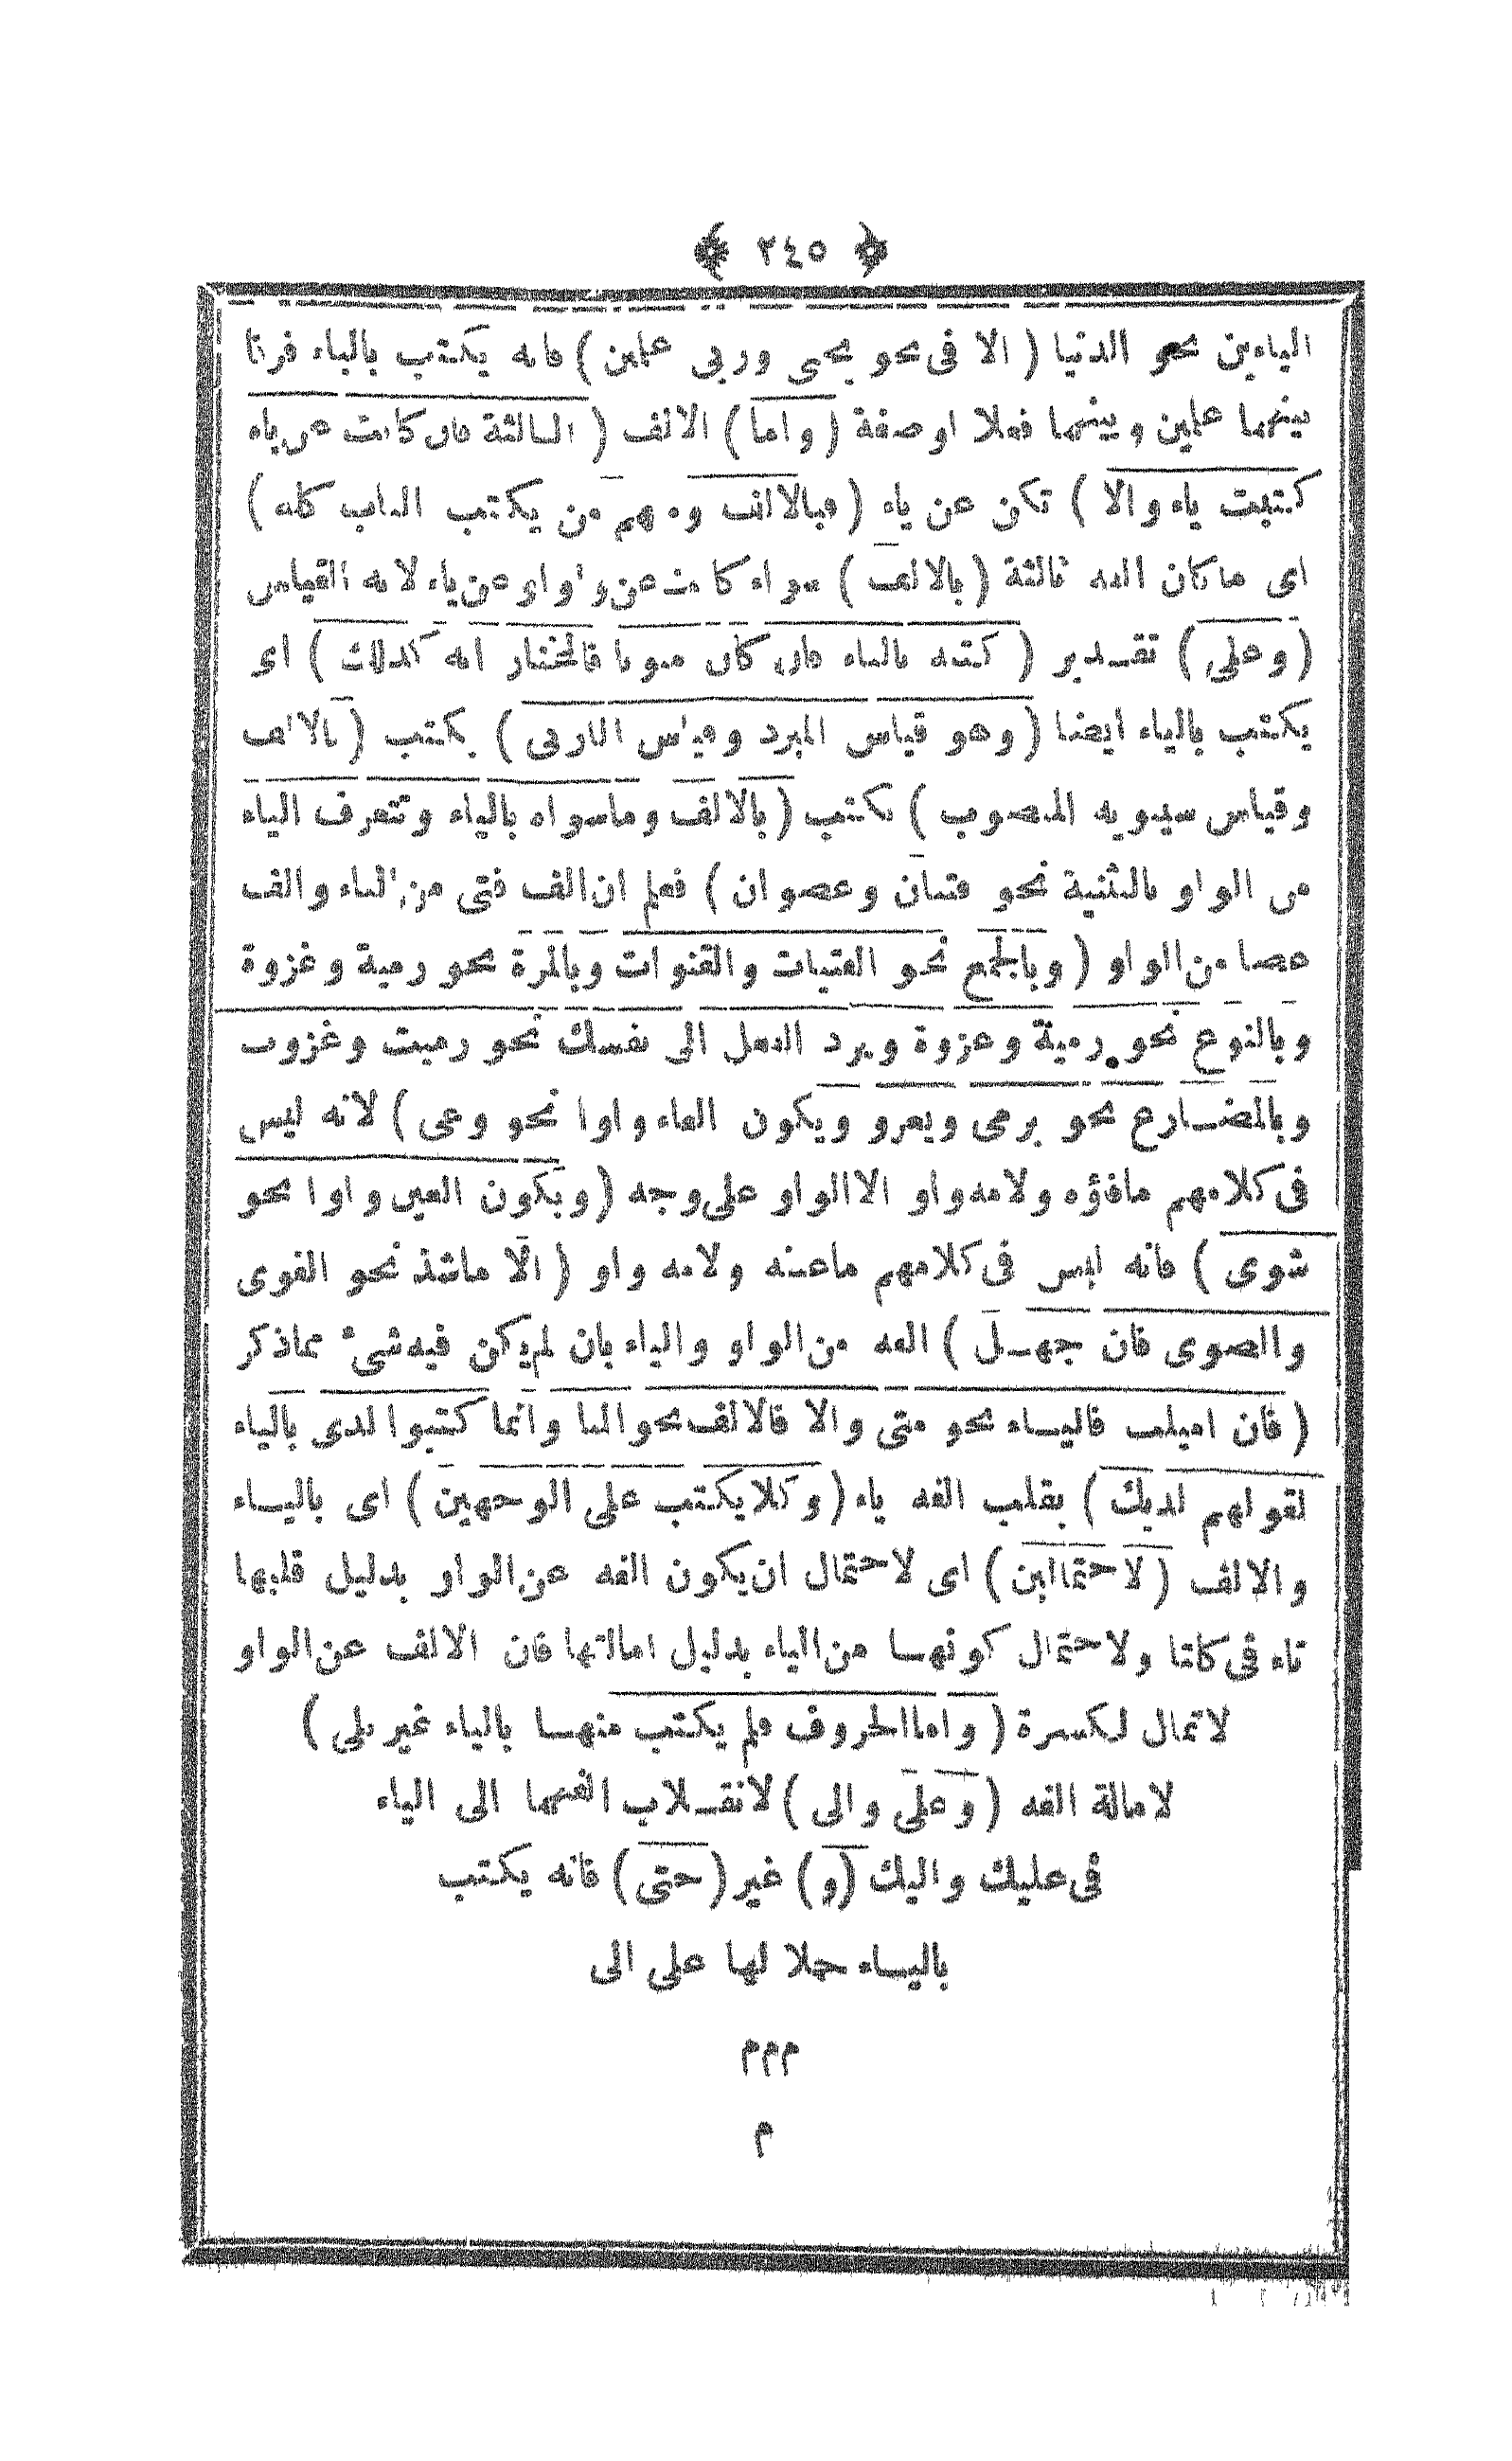 ﴿ ٢٤٥ ﴾
الياءين نحو الدنيا ( الا فى نحو يحيى وربى علمين ) فانه يكتب بالياء فرقا
بينهما علمين وبينهما فعلا اوصفة ( واما ) الالف ( الثالثة فان كانت عن ياء
كتبت ياء والا ) تكن عن ياء ( فبالالف ومنهم من يكتب الباب كله )
اى ما كان الفه ثالثة ( بالالف ) سواء كانت عن واو او عن ياء لانه القياس
( وعلى ) تقدير ( كتبه بالياء فان كان منونا فالمختار انه كذلك ) اى
يكتب بالياء ايضا ( وهو قياس المبرد وقياس المازنى ) يكتب ( بالالف
وقياس سيبويه المنصوب ) يكتب ( بالالف وماسواه بالياء وتتعرف الياء
من الواو بالتثنية نحو فتيان وعصوان ) فعلم ان الف فتى من الياء والف
عصا من الواو ( وبالجمع نحو الفتيات والقنوات وبالمرة نحو رمية وغزوة
وبالنوع نحو رمية وغزوة وبرد الفعل الى نفسك نحو رميت وغزوت
وبالمضارع نحو يرمى ويغزو وبكون الفاء واوا نحو وعى ) لانه ليس
فى كلامهم مافاؤه ولامه واو الا الواو على وجه ( وبكون العين واوا نحو
شوى ) فانه ليس فى كلامهم ماعينه ولامه واو ( الا ماشذ نحو القوى
والصوى فان جهل ) الفه من الواو والياء بان لم يكن فيه شئ مماذكر
( فان اميلت فالياء نحو متى والا فالالف نحو المنا وانما كتبوا لدى بالياء
لقولهم لديك ) بقلب الفه ياء ( وكلا يكتب على الوجهين ) اى بالياء
والالف ( لاحتمالين ) اى لاحتمال ان يكون الفه عن الواو بدليل قلبها
تاء فى كلتا ولاحتمال كونها من الياء بدليل امالتها فان الالف عن الواو
لاتمال لكسرة ( واما الحروف فلم يكتب منها بالياء غير بلى )
لامالة الفه ( وعلى والى ) لانقلاب الفهما الى الياء
فى عليك واليك ( و ) غير ( حتى ) فانه يكتب
بالياء حملا لها على الى
م م م
م